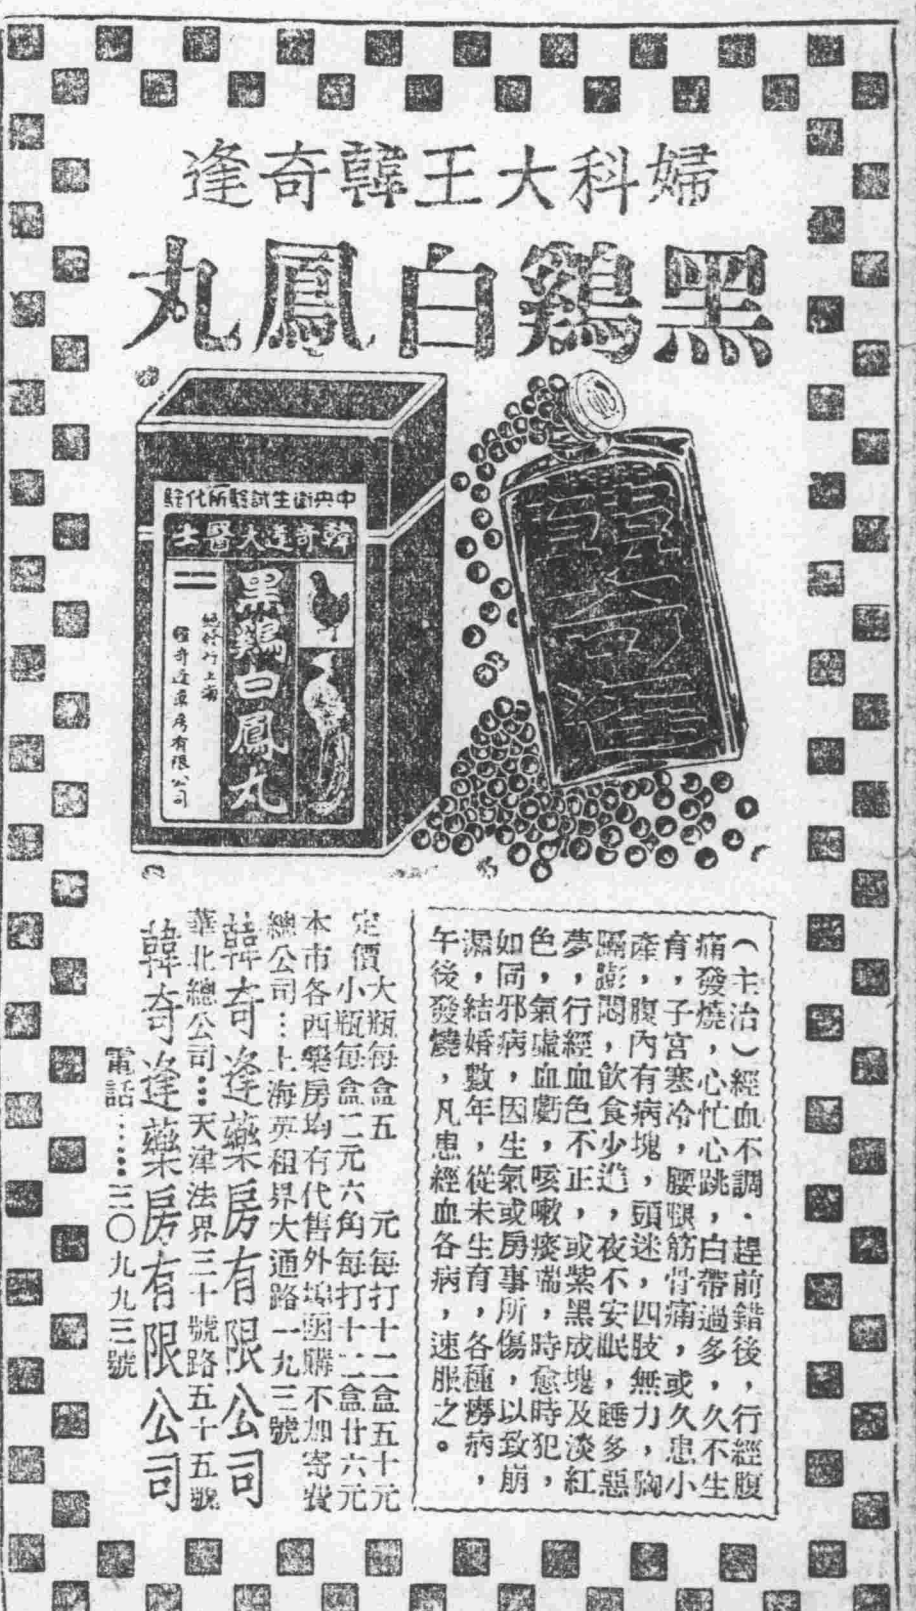 婦科大王韓奇逢
黑鷄白鳳丸
中央衛生試驗所化驗
韓奇逢大醫士
黑鷄白鳳丸
總發行上海
韓奇逢藥房有限公司
韓奇逢
(主治)經血不調．趕前錯後，行經腹
痛發燒，心忙心跳，白帶過多，久不生
有，子宮寒冷，腰腿筋骨痛，或久患小
產，腹內有病塊，頭迷，四肢無力，胸
膈膨悶，飲食少進，夜不安眠，睡多惡
夢，行經血色不正，或紫黑成塊及淡紅
色，氣虛血虧，咳嗽痰喘，時愈時犯，
如同邪病，因生氣或房事所傷，以致崩
漏，結婚數年，從未生育，各種癆病，
午後發燒，凡患經血各病，速服之。
定價大瓶每盒五　元每打十二盒五十元
小瓶每盒二元六角每打十二盒廿六元
本市各西藥房均有代售外埠函購不加寄費
總公司：上海英租界大通路一九三號
韓奇逢藥房有限公司
華北總公司：天津法界三十號路五十五號
韓奇逢藥房有限公司
電話……三〇九九三號